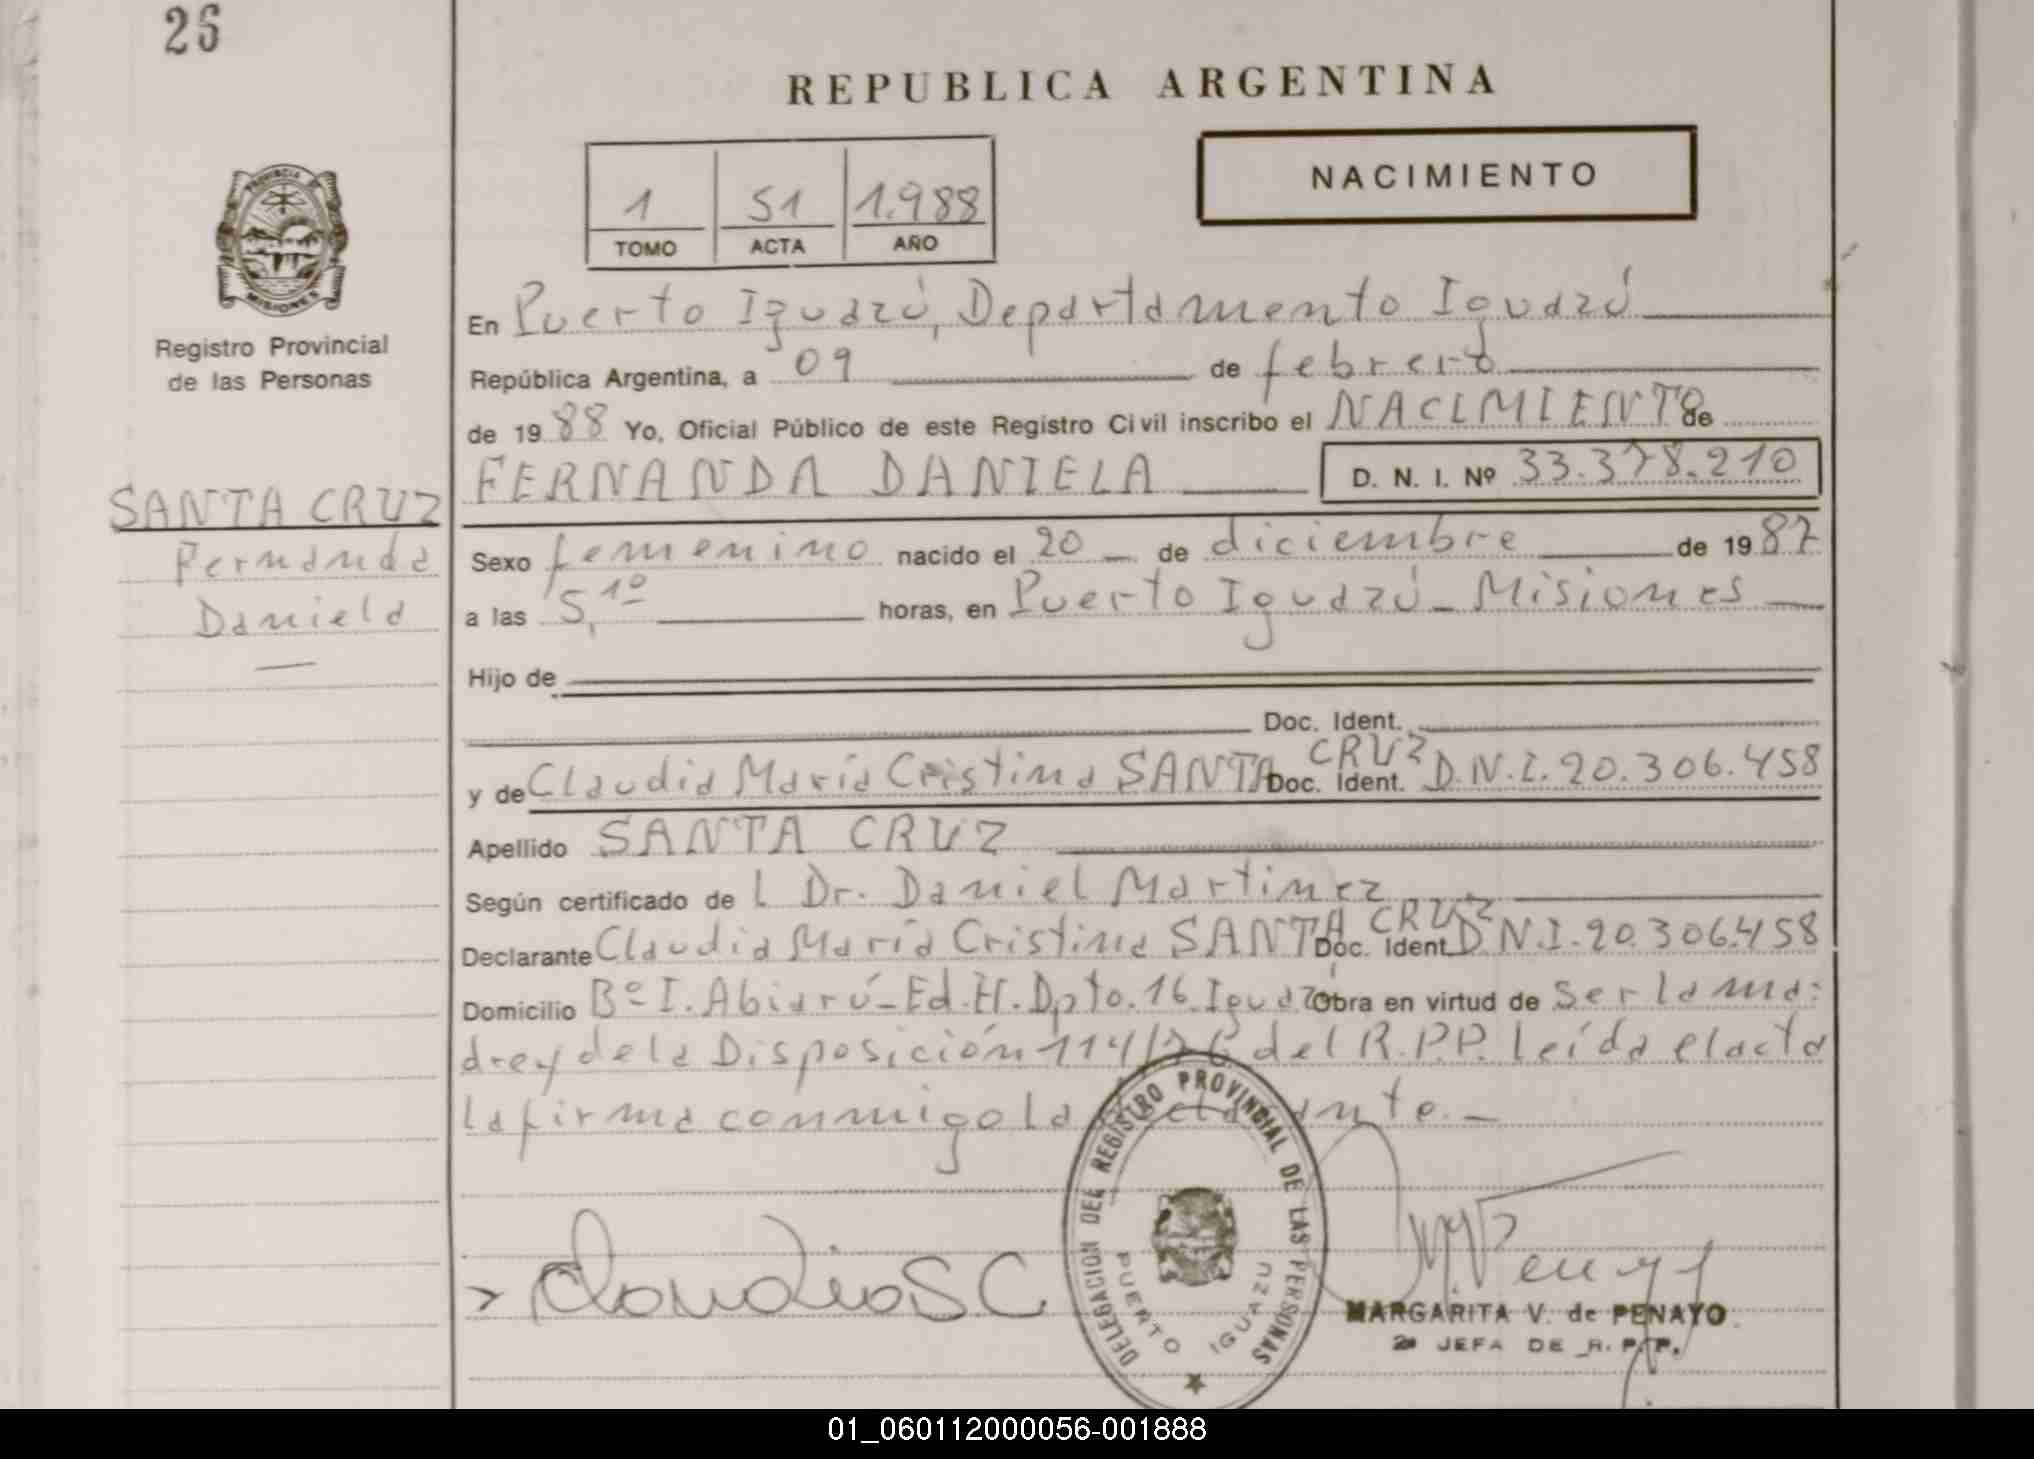 26
REPUBLICA ARGENTINA
NACIMIENTO
1 51 1.988
TOMO ACTA AÑO
PROVINCIA DE
MISIONES
Registro Provincial
de las Personas
En Puerto Iguazú, Departamento Iguazú
República Argentina, a 09 de febrero
de 1988 Yo, Oficial Público de este Registro Civil inscribo el NACIMIENTO de
FERNANDA DANIELA D. N. I. Nº 33.378.210
SANTA CRUZ
Fernanda
Daniela
Sexo femenino nacido el 20 de diciembre de 1987
a las 5,1º horas, en Puerto Iguazú - Misiones
Hijo de
Doc. Ident.
y de Claudia María Cristina SANTA CRUZ Doc. Ident. D.N.I. 20.306.458
Apellido SANTA CRUZ
Según certificado de l Dr. Daniel Martinez
Declarante Claudia María Cristina SANTA CRUZ Doc. Ident. D.N.I. 20.306.458
Domicilio Bº I. Abiarú - Ed. H. Dpto. 16 Iguazú Obra en virtud de ser la ma-
dre y de la Disposición 114/76 del R.P.P. Leída el acta
la firma conmigo la declarante.-
DELEGACION DEL REGISTRO PROVINCIAL DE LAS PERSONAS
PUERTO IGUAZU
Claudia SC
MARGARITA V. de PENAYO
2ª JEFA DE R. P. P.
01_060112000056-001888